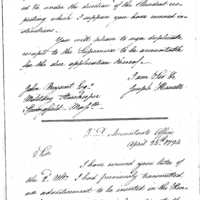 as to under the direction of the President re-
specting which I suppose you have received in-
structions.
You will please to sign duplicate
receipts to the Supervisor to be accountable
for the due application thereof.
I am Sir &c
Joseph Howell
John Bryant Esqr
Military Storekeeper
Springfield
Accountants Office
April 24th 1794
Sir
I have received your letter
of the I had previously transmitted
an advertisement to be inserted in the